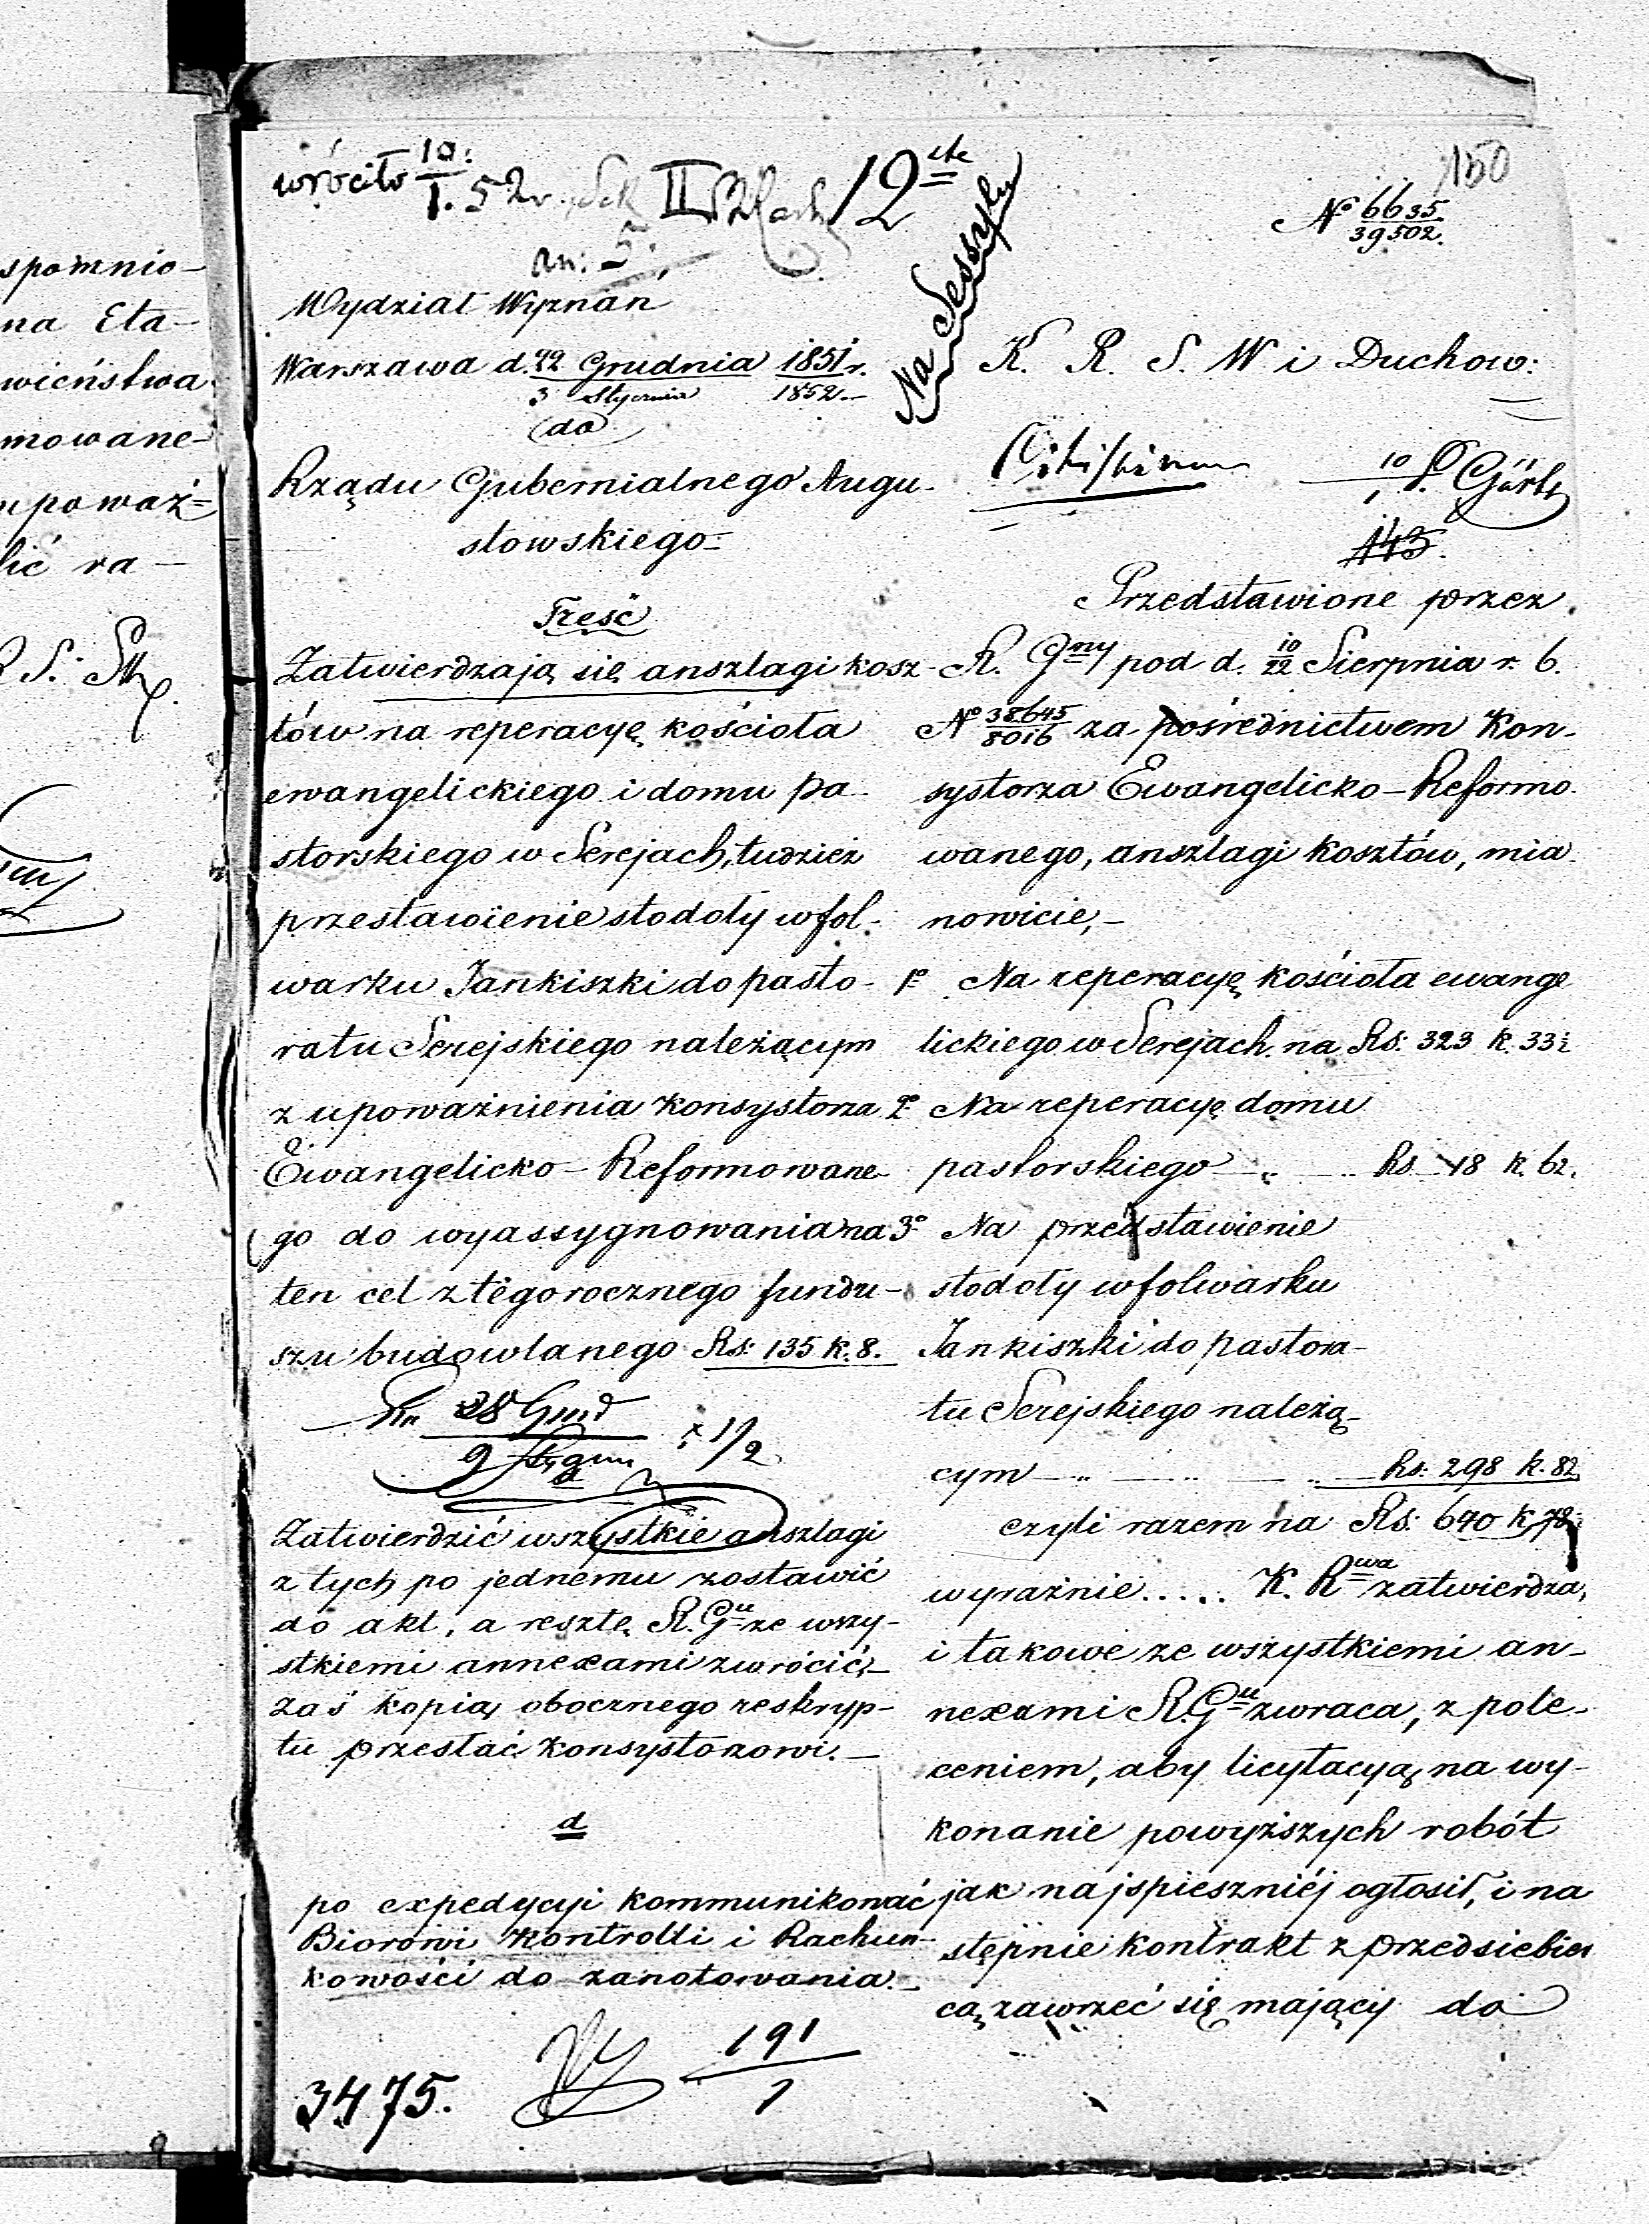 spomnio-
na Eta-
wieństwa
mowane-
upoważ=
lić ra-
wróciło 10/I. 52 r. Sek II 12
an: 5.
150
N° 6635/39502.
Na Sessyły
Wydział Wyznań
Warszawa d. 22 Grudnia 1851 r.
3 Stycznia 1852.-
do
Rządu Gubernialnego Augu-
stowskiego-
Treść
Zatwierdzają się anszlagi kosz-
tów na reperacyę kościoła
ewangelickiego i domu pa-
storskiego w Serejach, tudzież
przestawienie stodoły w fol-
warku Jankiszki do pasto-
ratu Serejskiego należącym
z upoważnienia Konsystorza
Ewangelicko-Reformowane-
go do wyassygnowania na
ten cel z tegorocznego fundu-
szu budowlanego Rs: 135 k. 8.
28 Grud
9
1/2
Zatwierdzić wszystkie anszlagi
z tych po jednemu zostawić
do akt, a resztę R. Gu ze wszy-
stkiemi annexami zwrócić,-
zaś kopią obocznego reskryp-
tu przesłać Konsystorzowi.-
d
po expedycyi kommunikować
Biorowi Kontrolli i Rachun-
kowości do zanotowania.-
3475.
191/1
K. R. S. W i Duchow:
10/1
143.
Przedstawione przez
R. Gny pod d. 10/22 Sierpnia r. b.
N° 38645/8016 za pośrednictwem Kon-
systorza Ewangelicko-Reformo-
wanego, anszlagi kosztów, mia-
nowicie,-
1° Na reperacyę kościoła ewange
lickiego w Serejach na Rs: 323 k. 33½
2° Na reperacyę domu
pastorskiego - " - Rs 18 k. 62.
3° Na przedstawienie
stodoły w folwarku
Jankiszki do pastora-
tu Serejskiego należą-
cym - " - " - " - Rs: 298 k. 82
czyli razem na Rs: 640 k. 78
wyraźnie..... K. Rwa zatwierdza,
i takowe ze wszystkiemi an-
nexami R. Gu zwraca, z pole-
ceniem, aby licytacyą na wy-
konanie powyższych robót
jak najspieszniéj ogłosił, i na
stępnie kontrakt z przedsiebier
cą zawrzeć się mający do